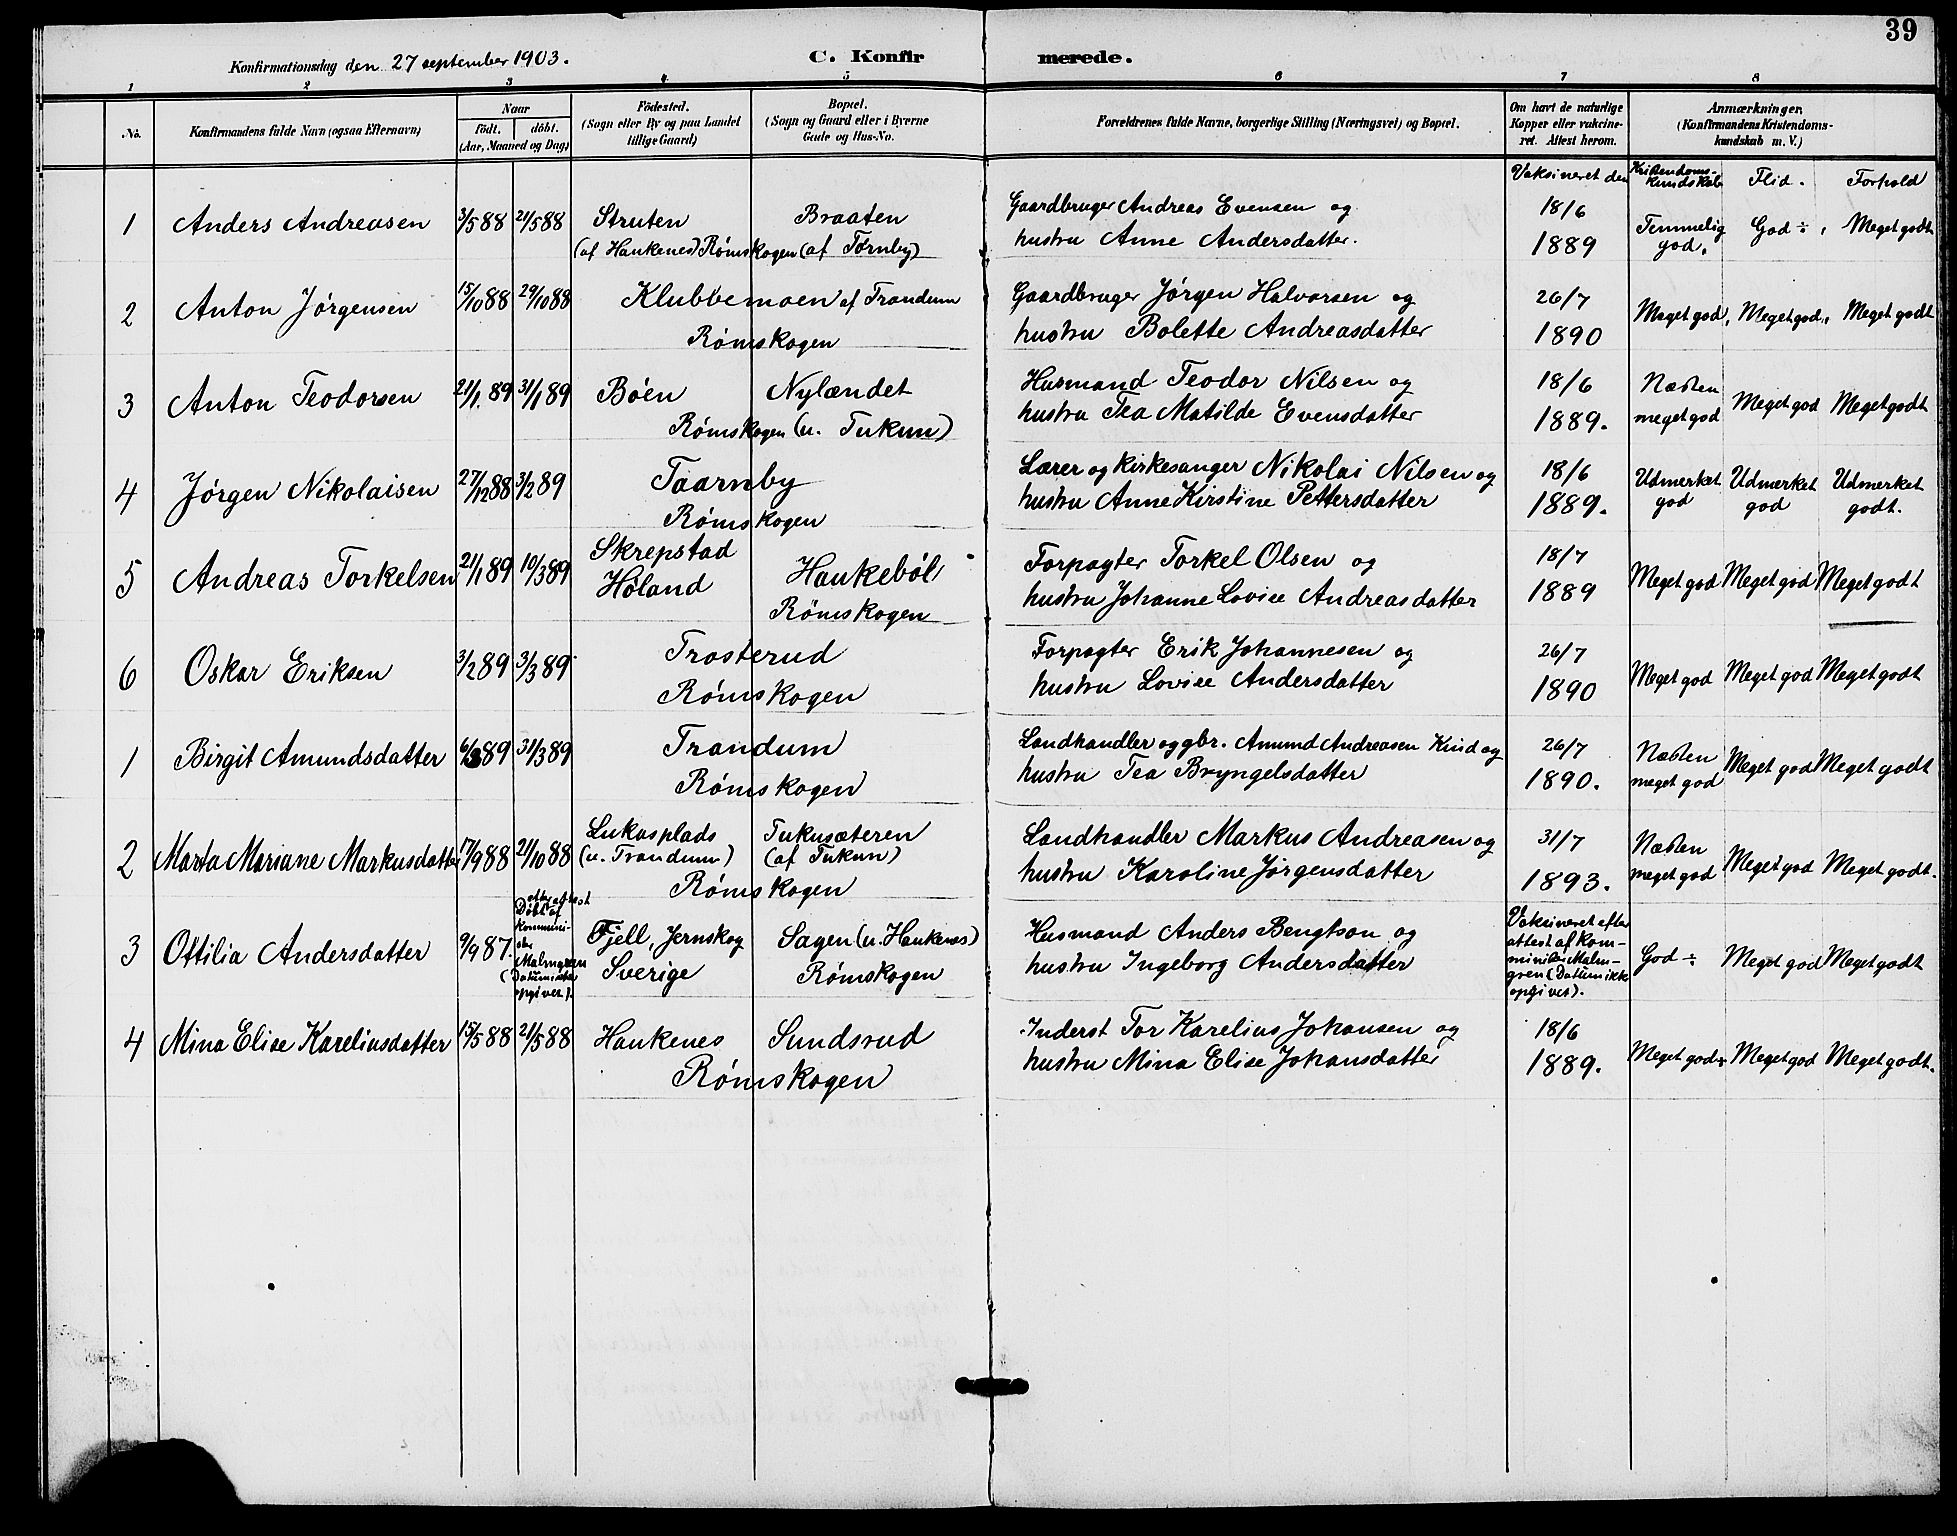 39
Konfirmationsdag den 27 september 1903.
C. Konfirmerede.
1 2 3 4 5 6 7 8
No.
Konfirmandens fulde Navn (ogsaa Efternavn)
Naar
født. døbt.
(Aar, Maaned og Dag)
Fødested.
(Sogn eller By og paa Landet
tillige Gaard)
Bopæl.
(Sogn og Gaard eller i Byerne
Gade og Hus-No.
Forældrenes fulde Navne, borgerlige Stilling (Næringsvei) og Bopæl.
Om havt de naturlige
Kopper eller vakcine-
ret. Attest herom.
Anmærkninger,
(Konfirmandens Kristendoms-
kundskab m. V.)
Vaksineret den Kristendoms-kundskab Flid. Forhold
1 Anders Andreasen 3/5 88 21/5 88 Struten Braaten Gaardbruger Andreas Evensen og 18/6 Temmelig God ÷ Meget godt
(af Haukenes) Rømskogen (af Tørnby) hustru Anne Andersdatter. 1889 god.
2 Anton Jørgensen 15/10 88 29/10 88 Klubbemoen af Trandum Gaardbruger Jørgen Halvorsen og 26/7 Meget god, Meget god, Meget godt
Rømskogen hustru Bolette Andreasdatter 1890
3 Anton Teodorsen 21/1. 89 31/1 89 Bøen Nylændet Husmand Teodor Nilsen og 18/6 Næsten Meget god Meget godt
Rømskogen (u. Tukun) hustru Tea Matilde Evensdatter 1889. meget god
4 Jørgen Nikolaisen 27/12 88 3/2 89 Taarnby Lærer og kirkesanger Nikolai Nilsen og 18/6 Udmerket Udmerket Udmerket
Rømskogen hustru Anne Kirstine Pettersdatter 1889. god god godt.
5 Andreas Torkelsen 21/1 89 10/3 89 Skrepstad Haukebøl Forpagter Torkel Olsen og 18/7 Meget god Meget god Meget godt
Høland Rømskogen hustru Johanne Lovise Andreasdatter 1889
6 Oskar Eriksen 3/2 89 3/3 89 Trosterud Forpagter Erik Johannesen og 26/7 Meget god Meget god Meget godt
Rømskogen hustru Lovise Andersdatter 1890
1 Birgit Amundsdatter 6/3 89 31/3 89 Trandum Landhandler og gbr. Amund Andreasen Kind og 26/7 Næsten Meget god Meget godt
Rømskogen hustru Tea Bryngelsdatter 1890. meget god
2 Marta Mariane Markusdatter 17/9 88 21/10 88 Lukasplads Tukusæteren Landhandler Markus Andreasen og 31/7 Næsten Meget god Meget godt.
(u. Trandum) (af Tukun) hustru Karoline Jørgensdatter 1893. meget god
Rømskogen
3 Ottilia Andersdatter 9/9 87. Døbt efter attest af Kommini-ster Malmgren (Datum ikke opgivet). Fjell, Jernskog Sagen (u. Haukenes) Husmand Anders Bengtson og Vaksineret efter God ÷ Meget god Meget godt
Sverige Rømskogen hustru Ingeborg Andersdatter attest af Kom-
minister Malm-
gren (Datum ikke
opgivet).
4 Mina Elise Kareliusdatter 15/5 88 21/5 88 Haukenes Sundsrud Inderst Tor Karelius Johansen og 18/6 Meget god ÷ Meget god Meget godt.
Rømskogen hustru Mina Elise Johansdatter 1889.